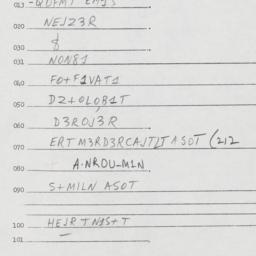 013
020 NEJZ3R
030 $
031 NON81
040 FO+F1VAT1
050 DZ+OLOB1T
060 D3ROJ3R
070 ERT M3RD3RCAJTLT ASOT (212
080 A·NROU-M1N
090 S+MILN ASOT
100 HEJR TN1S+T
101